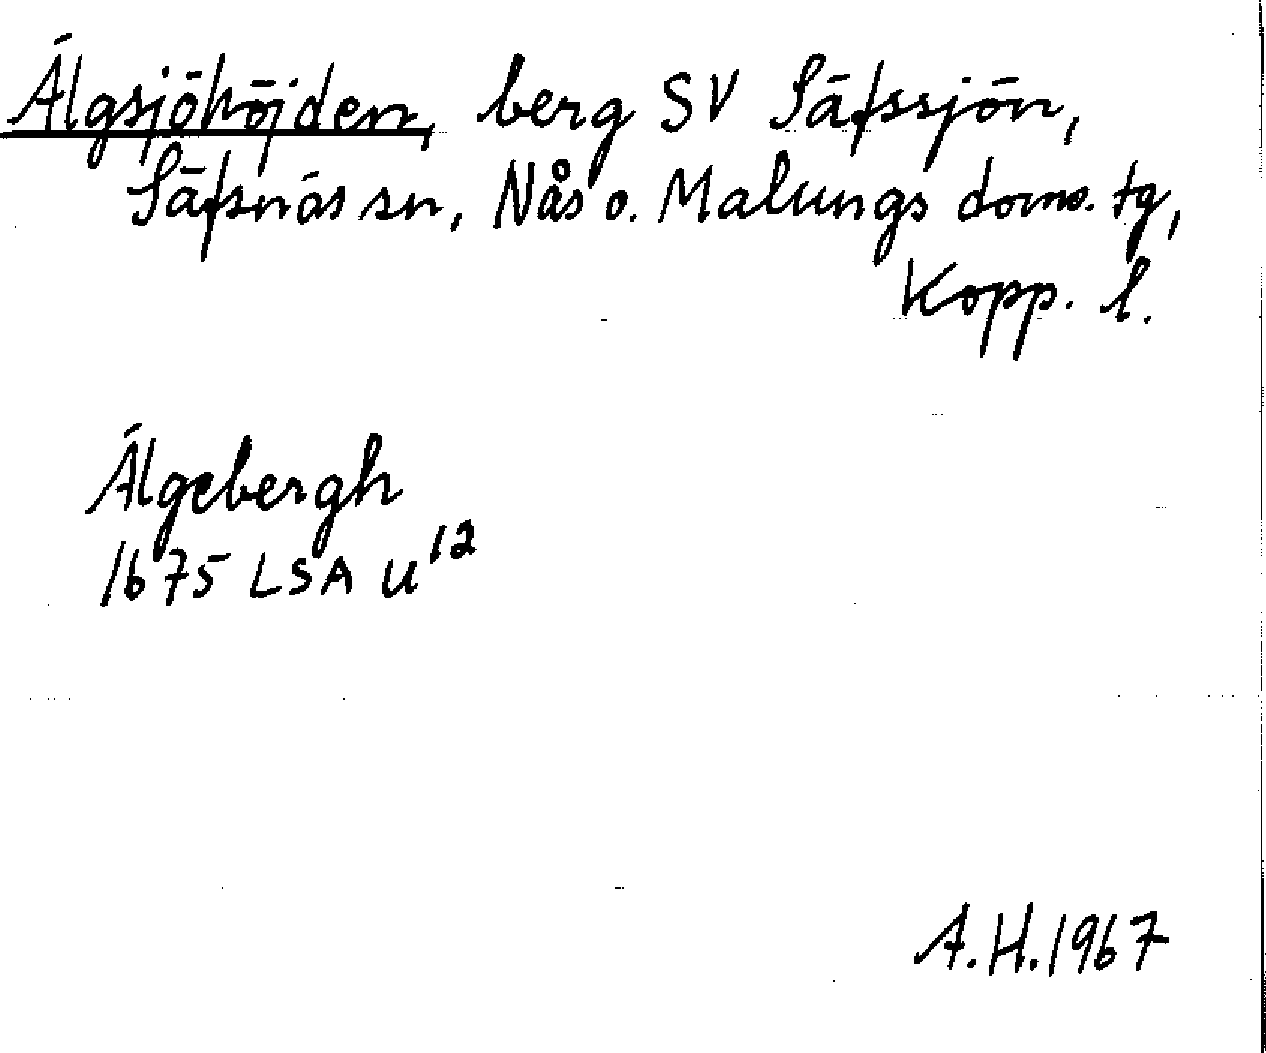 Älgsjöhöjden, berg SV Säfssjön,
Säfsnäs sn, Nås o. Malungs doms. tg,
Kopp. l.
Älgebergh
1675 LSA U¹²
A.H. 1967